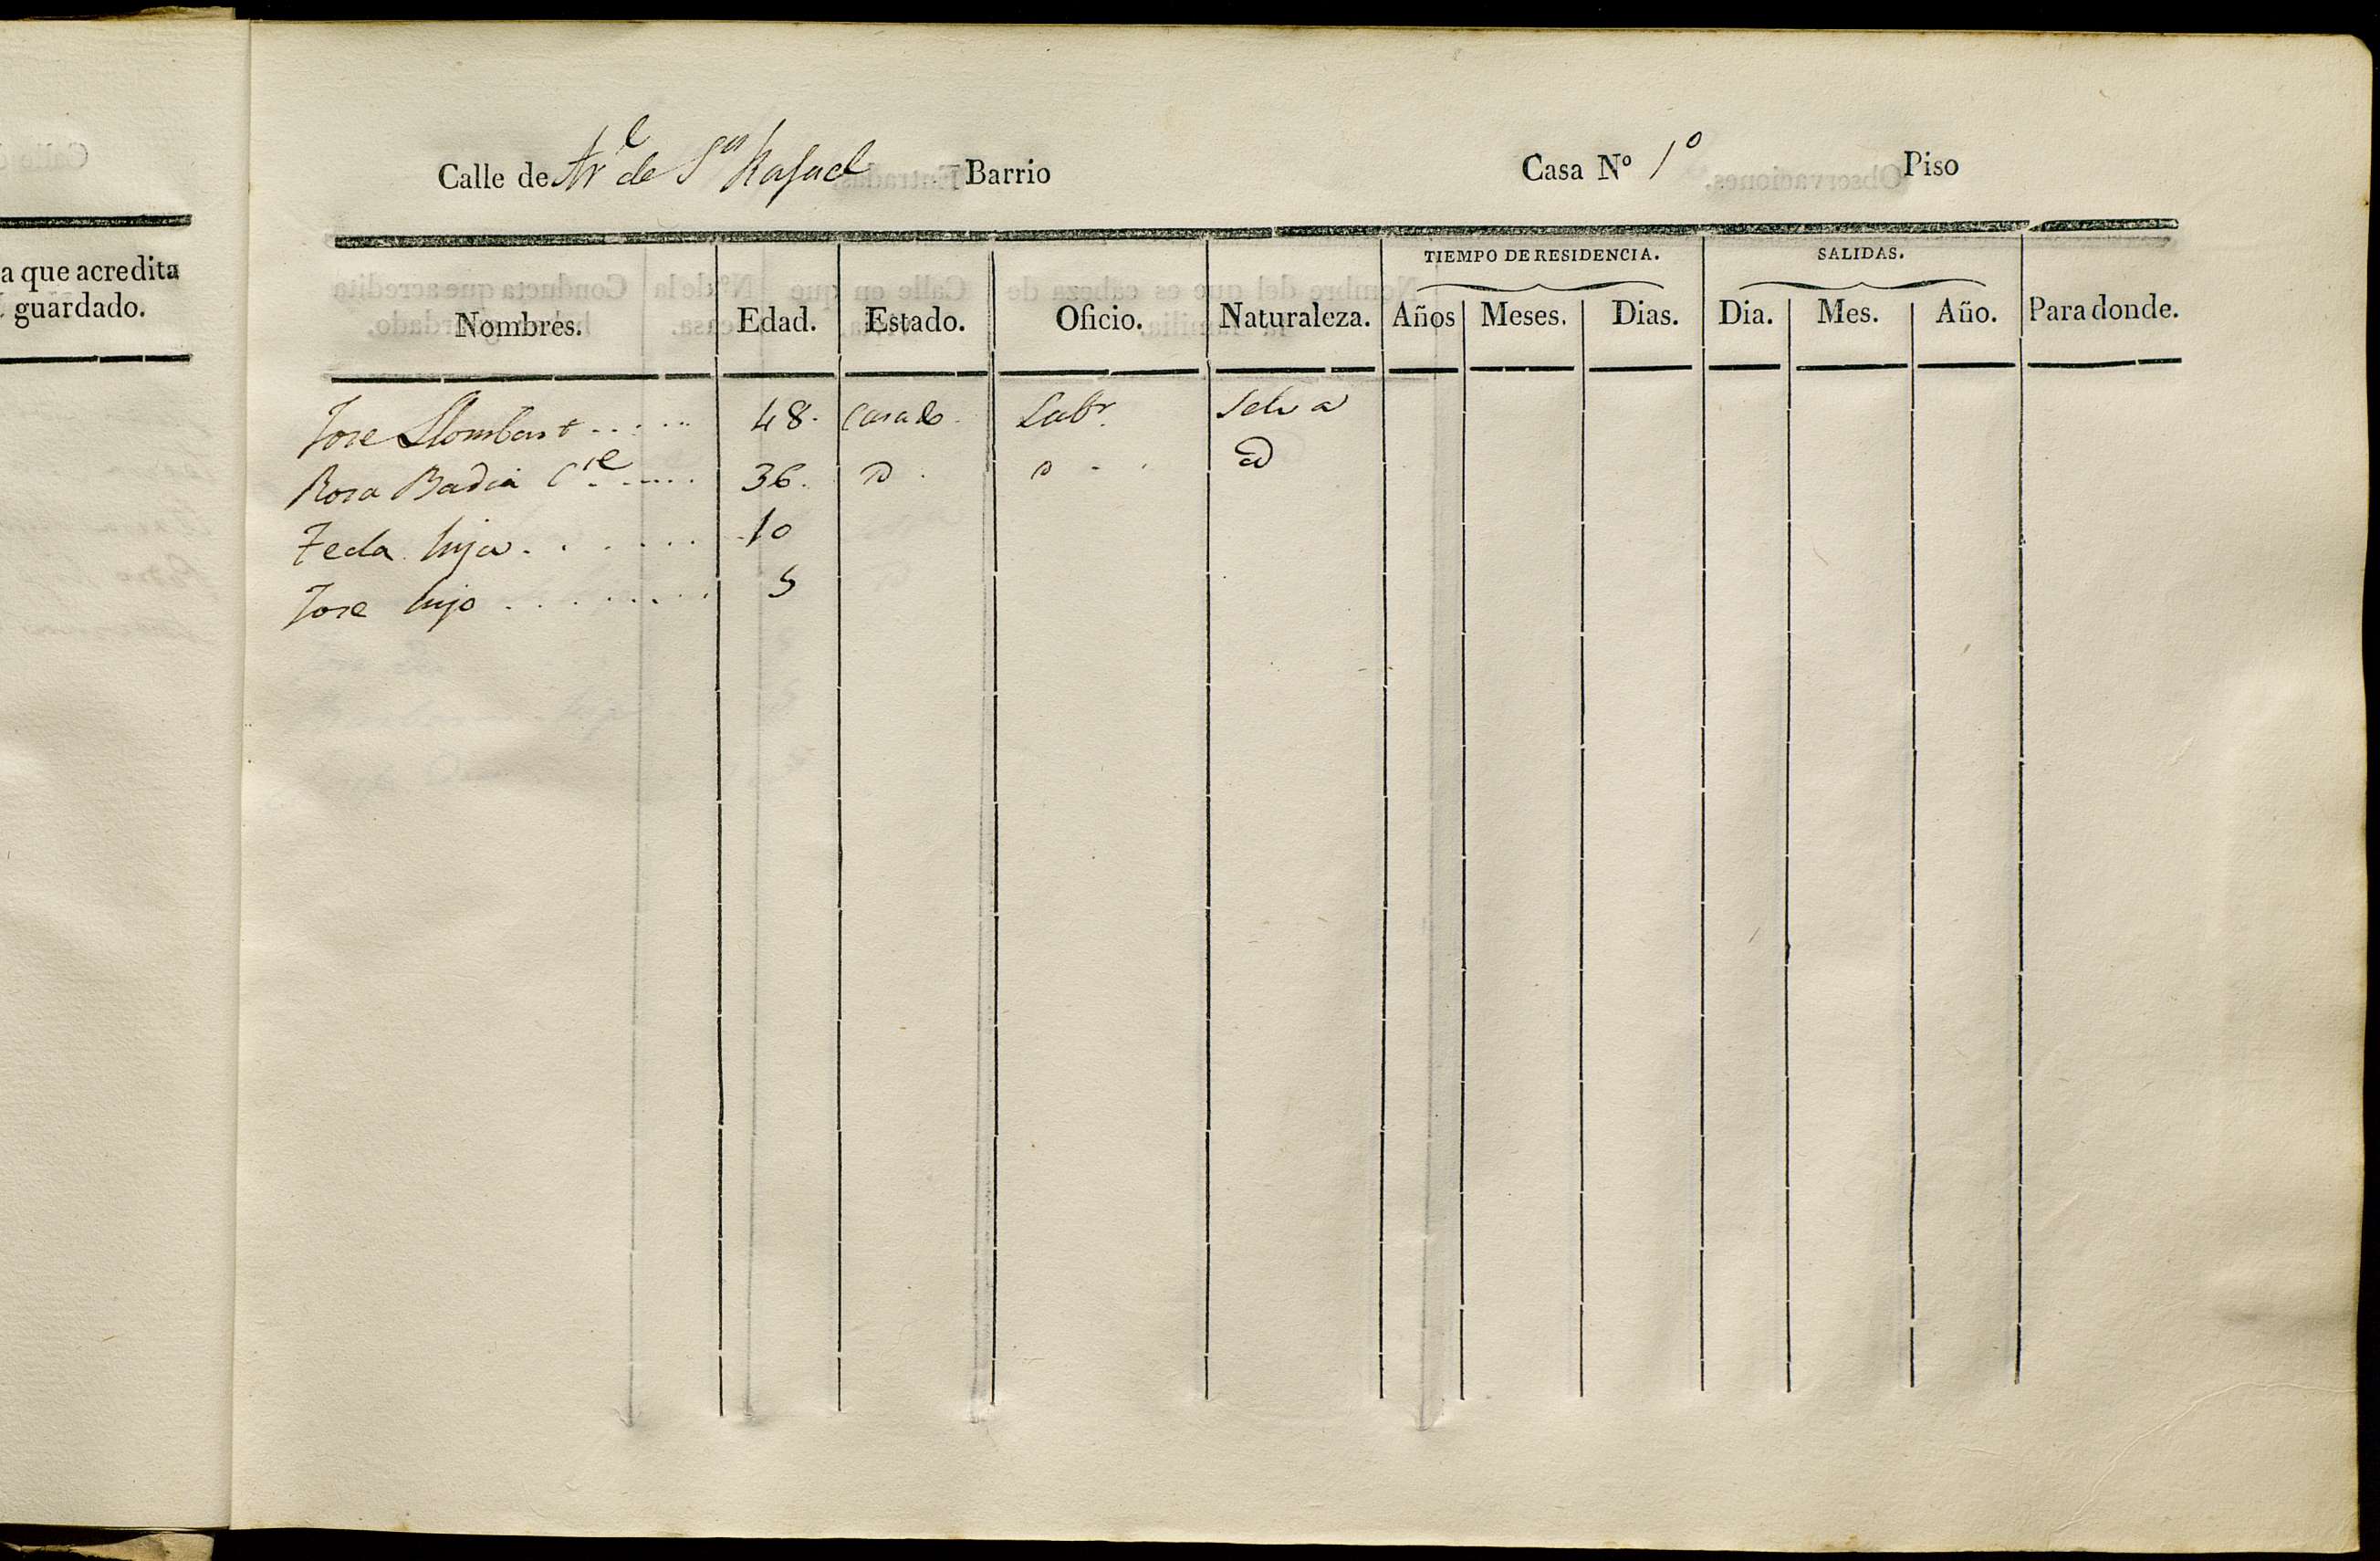 a que acredita
guardado.
Calle de Arl de Sn Rafael Barrio Casa Nº 1º Piso
TIEMPO DE RESIDENCIA. SALIDAS.
Nombres. Edad. Estado. Oficio. Naturaleza. Años Meses. Dias. Dia. Mes. Año. Para donde.
Jose Llombart 48. Casado. Labr. Selva
Rosa Badia Cte 36.
Tecla hija 10
Jose hijo 5